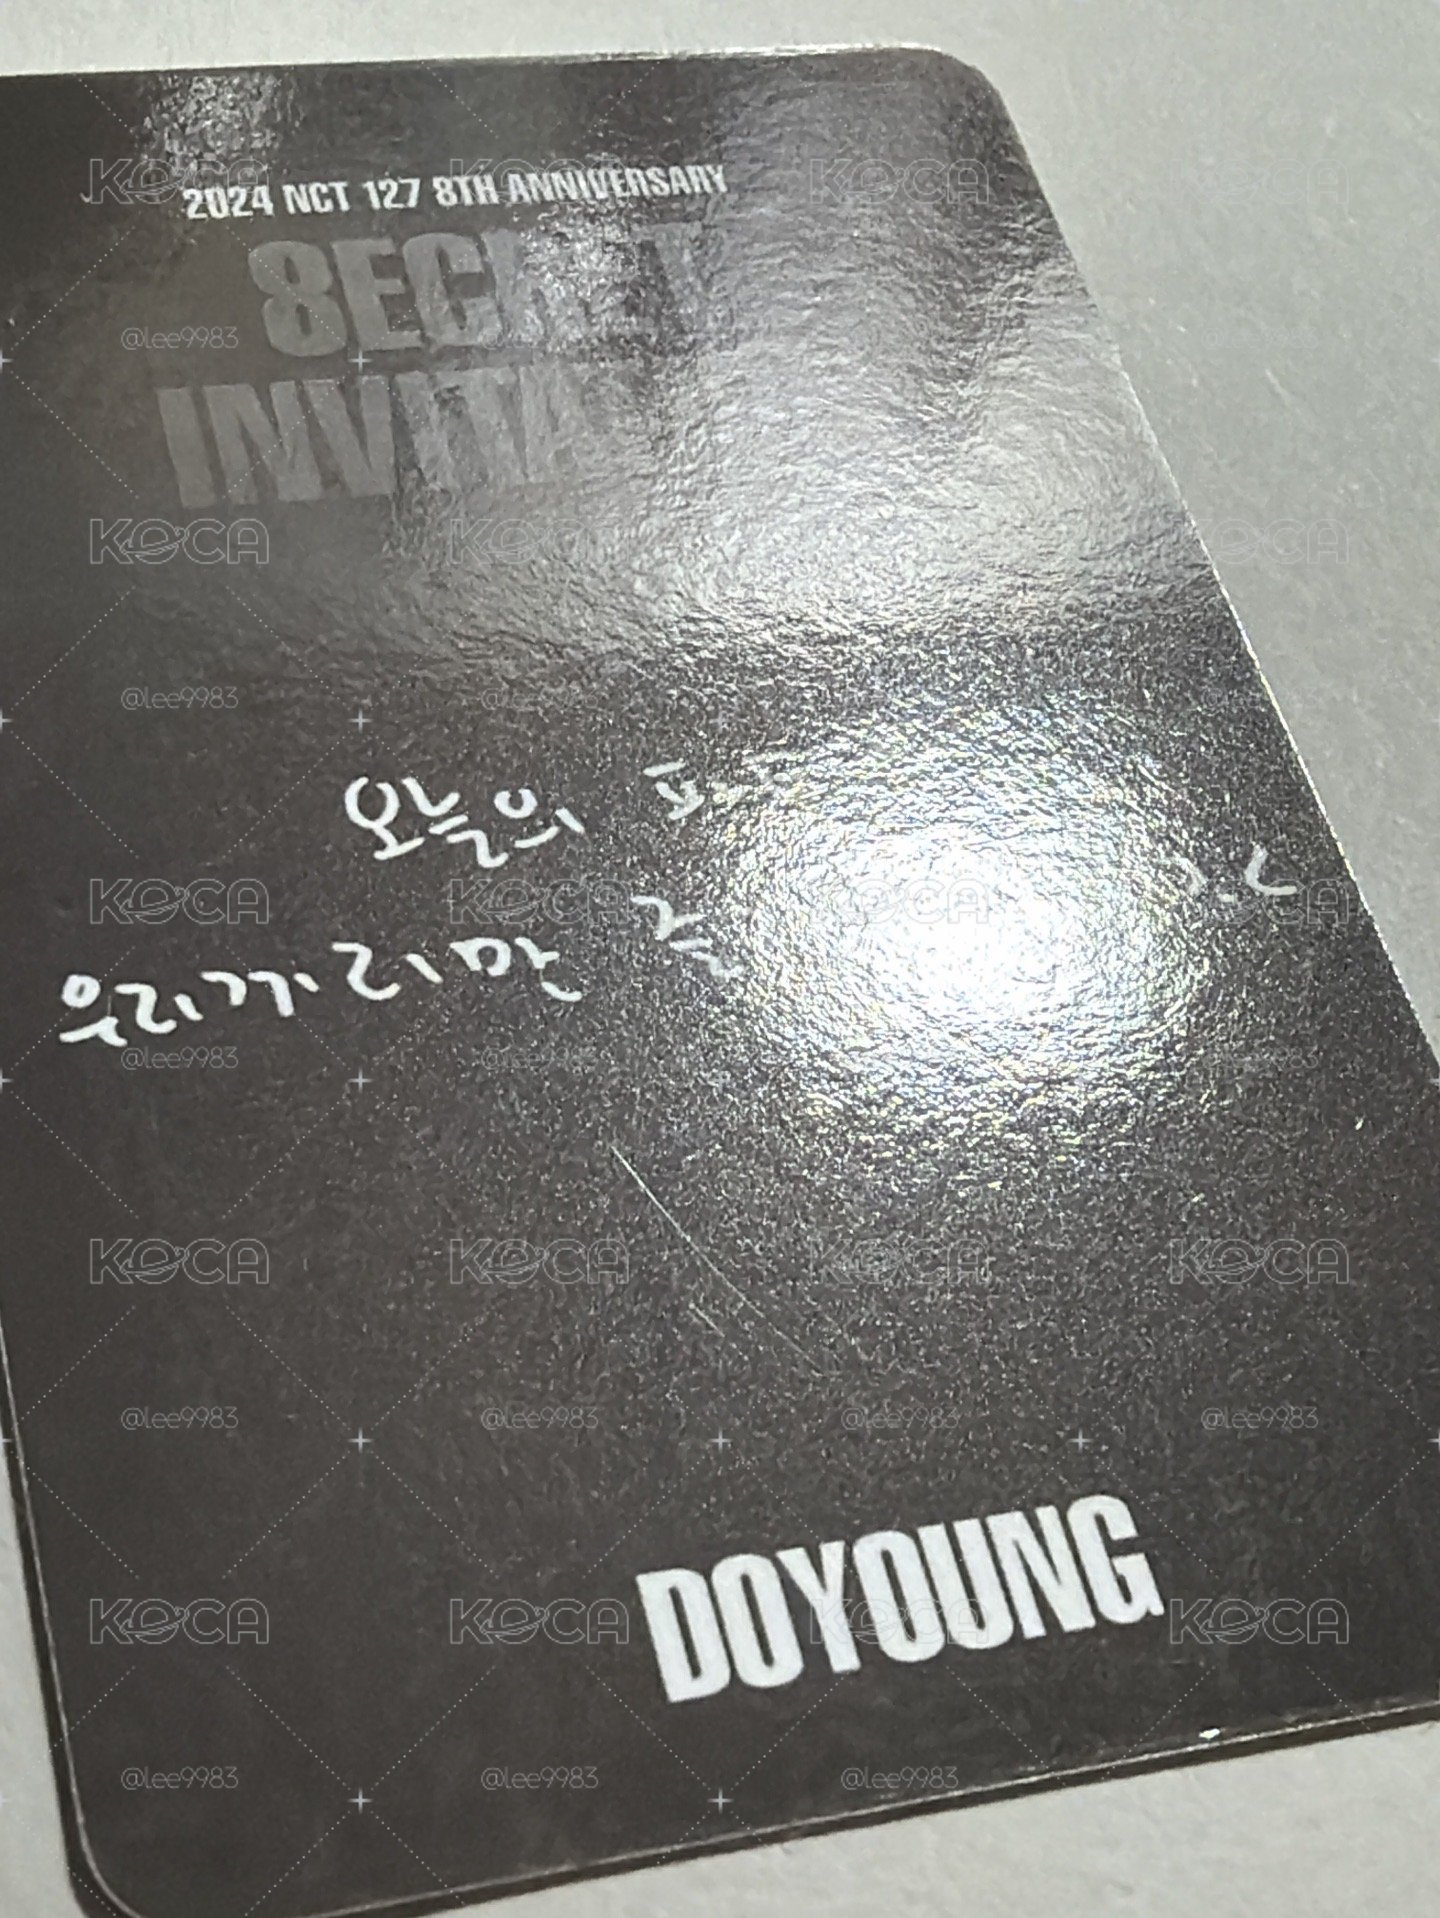 2024 NCT 127 8TH ANNIVERSARY
8ECRET
INVITA
오늘의
우리끼리만
DOYOUNG
KOCA
@lee9983